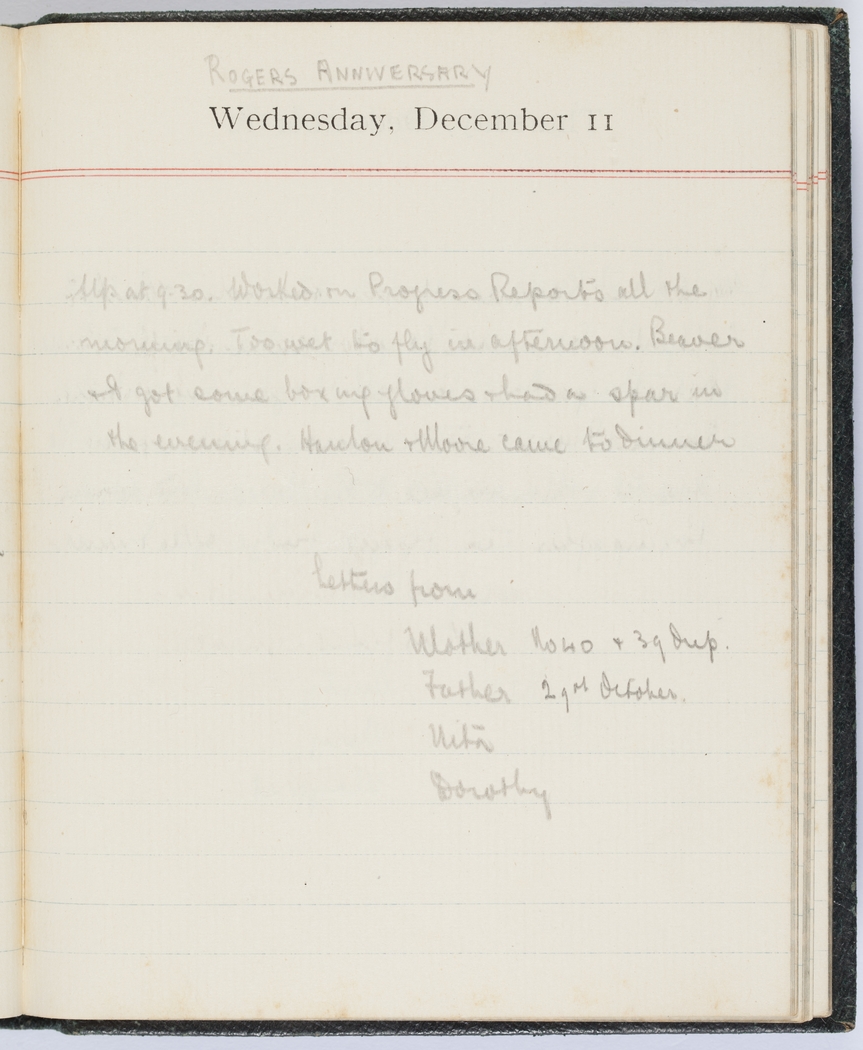 ROGERS ANNIVERSARY
Wednesday, December 11
Up at 9.30. Worked on Progress Reports all the
morning. Too wet to fly in afternoon. Beaver
+ I got some boxing gloves + had a spar in
the evening. + Moore came to dinner
Letters from
Mother No 40 + 39 dup.
Father 29th October.
Nita
Dorothy